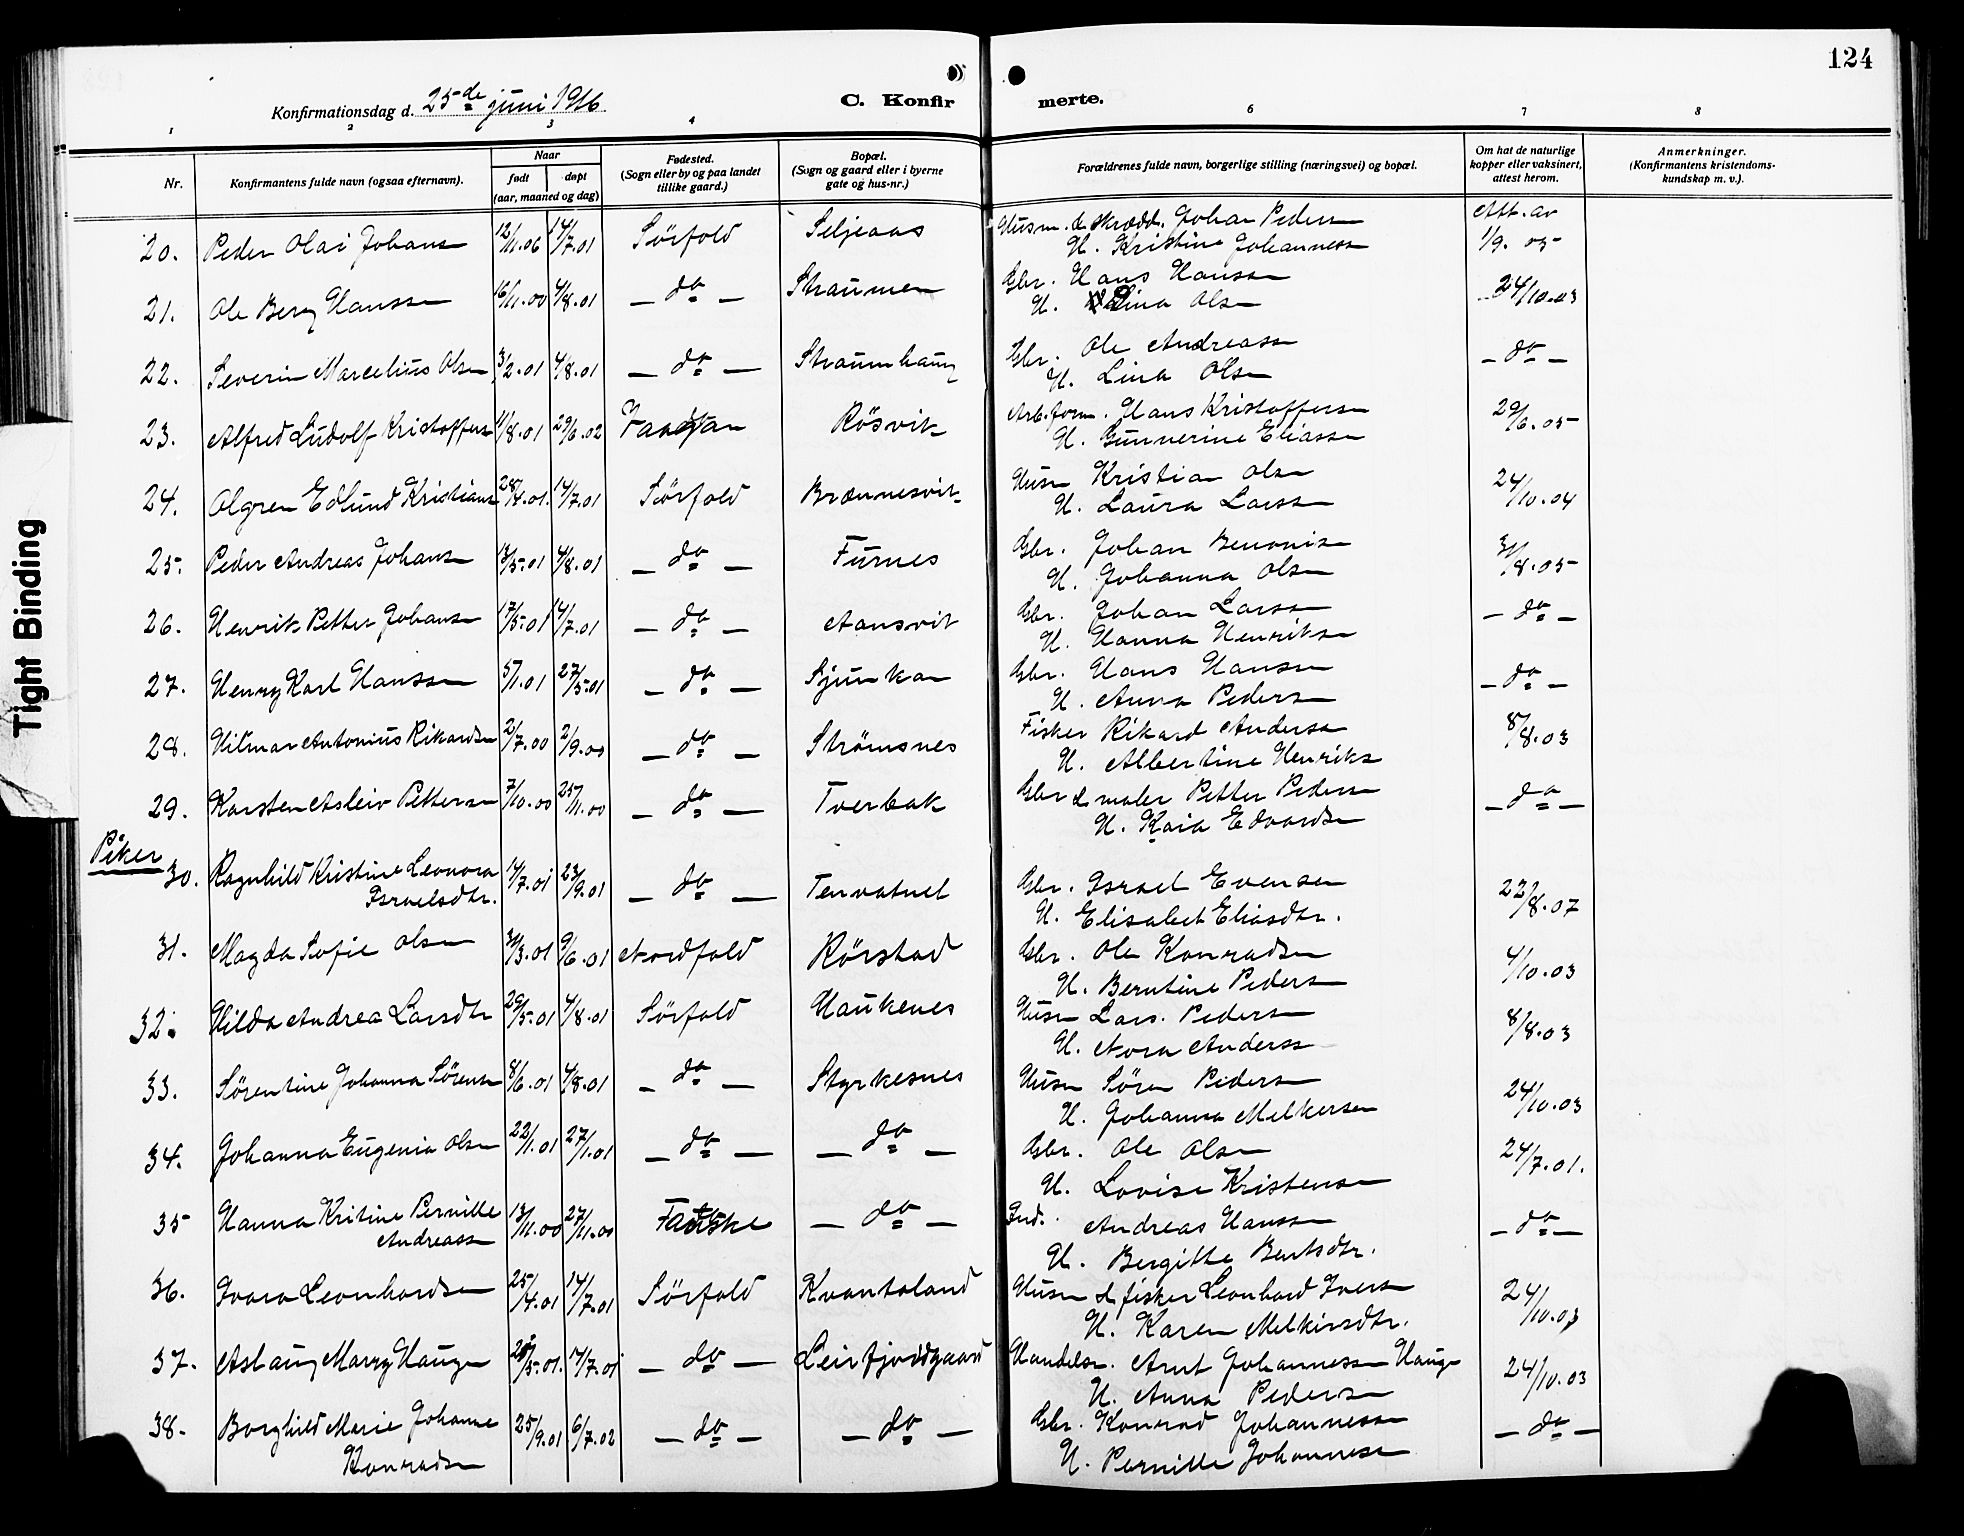 124
Konfirmationsdag d. 25de juni 1916
C. Konfir merte.
1 2 3 4 6 7 8
Nr. Konfirmantens fulde navn (ogsaa efternavn). Naar født døpt (aar, maaned og dag) Fødested. (Sogn eller by og paa landet tillike gaard.) Bopæl. (Sogn og gaard eller i byerne gate og hus-nr.) Forældrenes fulde navn, borgerlige stilling (næringsvei) og bopæl. Om hat de naturlige kopper eller vaksinert, attest herom. Anmerkninger. (Konfirmantens kristendoms-kundskap m. v.).
20. Peder Olai Johans 12/11.06 14/7.01 Sörfold Seljeaas Husm. & skrædd. Johan Peders Att. av
H. Kristine Johanness 1/9. 05
21. Ole Berg Hanssen 16/11.00 4/8.01 - do - Straumen Gbr. Hans Hanssen 24/10.03
H. Lina Olsn
22. Severin Marcelius Olsen 3/2.01 4/8.01 - do - Straumhaug Gbr. Ole Andreassn - do -
H. Lina Olsn
23. Alfred Ludolf Kristoffersn 11/8.01 29/6.02 Rösvik Arb.form. Hans Kristoffersn 29/6.05
H. Gunnerine Eliassn
24. Olgren Edlund Kristians 28/4.01. 14/7.01 Sörfold Brennesvik Husm Kristian Olsn 24/10.04
H. Laura Larssn
25. Peder Andreas Johansn 13/5.01 4/8.01 - do - Furnes Gbr. Johan Benonisn 31/8.05
H. Johanna Olsn
26. Henrik Petter Johansn 17/5.01 14/7.01 - do - Aansvik Gbr. Johan Larssn - do -
H. Hanna Henriksn
27. Henry Karl Hanssen 5/1.01 27/5.01 - do - Sjunkan Gbr. Hans Hansen - do -
H. Anna Pedersn
28. Hilmar Antonius Rikardsn 2/7.00 2/9.00 - do - Strömsnes Fisker Rikard Andersn 8/8.03
H. Albertine Henriks
29. Karsten Asleiv Pettersn 7/10.00 25/11.00 - do - Tverbak Gbr & maler Petter Pedersn - do -
H. Kaia Edvardsn
Piker
30. Ragnhild Kristine Leonora 14/7.01 23/9.01 - do - Tenvatnet Gbr. Israel Evensen 22/8.07
Israelsdtr. H. Elisabet Eliasdtr.
31. Magda Sofie Olsen 30/3.01 9/6.01 Nordfold Rörstad Gbr. Ole Konradsn 4/10.03
H. Berntine Pedersn
32. Hilda Andrea Larsdtr 29/5.01 4/8.01 Sörfold Haukenes Husm Lars. Pedersn 8/8.03
H. Nora Anderss
33. Sørentine Johanna Sörensn 8/6.01 4/8.01 - do - Styrkesnes Husm Sören Pedersn 24/10.03
H. Johanna Melkersen
34. Johanna Eugenia Olsen 22/1.01 27/1.01 - do - - do - Gbr. Ole Olsn 24/7.01.
H. Lovise Kristensen
35 Hanna Kritine Pernille 13/11.00 27/11.00 Fauske - do - Ind. Andreas Hanssn - do -
Andreassn H. Bergitte Bentsdtr.
36. Ivara Leonhardsen 25/4.01 14/7.01 Sörfold Kvantoland Husm & fisker Leonhard Iversn 24/10.03
H. Karen Melkirsdtr.
37. Aslaug Marry Haugen 28/5.01. 14/7.01 - do - Leirfjordgaard Handelsm. Arnt Johannessen Haug 24/10.03
H. Anna Pedersn
38. Borghild Marie Johanne 25/9.01 6/7.02 - do - - do - Gbr. Konrad Johannessn - do -
Konradsn H. Pernille Johannessn
Tight Binding